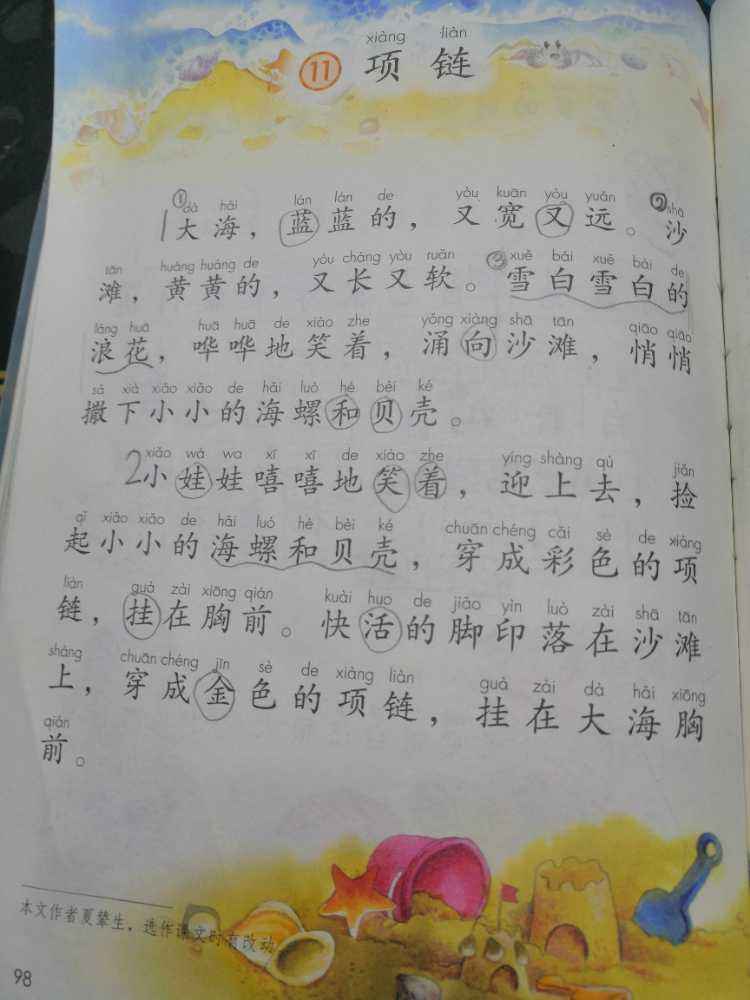 xiàng liàn
11 项链
① dà hǎi lán lán de yòu kuān yòu yuǎn ② shā
1 大海，蓝蓝的，又宽又远。沙
tān huáng huáng de yòu cháng yòu ruǎn ③ xuě bái xuě bái de
滩，黄黄的，又长又软。雪白雪白的
làng huā huā huā de xiào zhe yǒng xiàng shā tān qiāo qiāo
浪花，哗哗地笑着，涌向沙滩，悄悄
sǎ xià xiǎo xiǎo de hǎi luó hé bèi ké
撒下小小的海螺和贝壳。
xiǎo wá wa xī xī de xiào zhe yíng shàng qù jiǎn
2 小娃娃嘻嘻地笑着，迎上去，捡
qǐ xiǎo xiǎo de hǎi luó hé bèi ké chuān chéng cǎi sè de xiàng
起小小的海螺和贝壳，穿成彩色的项
liàn guà zài xiōng qián kuài huo de jiǎo yìn luò zài shā tān
链，挂在胸前。快活的脚印落在沙滩
shàng chuān chéng jīn sè de xiàng liàn guà zài dà hǎi xiōng
上，穿成金色的项链，挂在大海胸
qián
前。
本文作者夏辇生，选作课文时有改动。
98